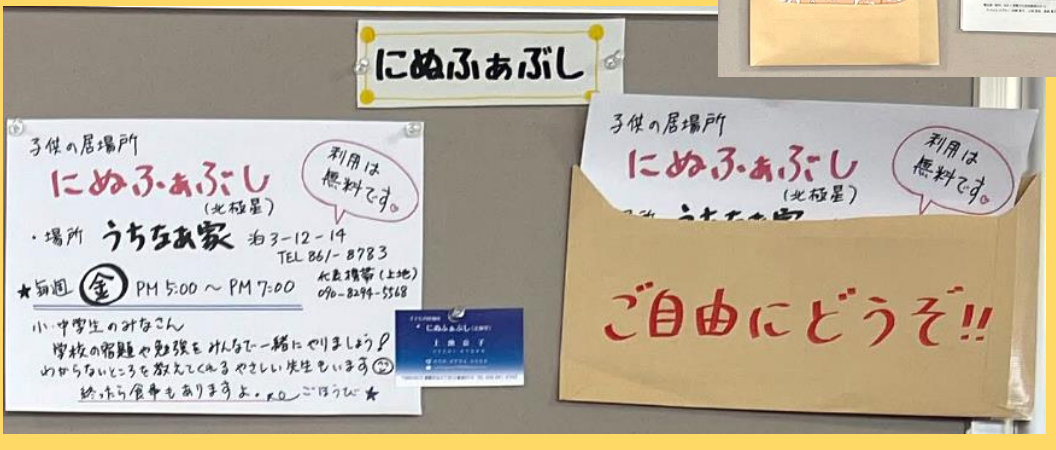 にぬふぁぶし
子供の居場所
にぬふぁぶし
(北極星)
利用は
無料です。
・場所 うちなぁ家 泊3-12-14
TEL 861-8783
代表携帯(上地)
090-8294-5568
★毎週 金 PM 5:00 〜 PM 7:00
小・中学生のみなさん
学校の宿題や勉強をみんなで一緒にやりましょう!
わからないところを教えてくれるやさしい先生もいます
終ったら食事もありますよ。 ごほうび★
にぬふぁぶし
子供の居場所
にぬふぁぶし
(北極星)
利用は
無料です。
うちなぁ家
ご自由にどうぞ!!